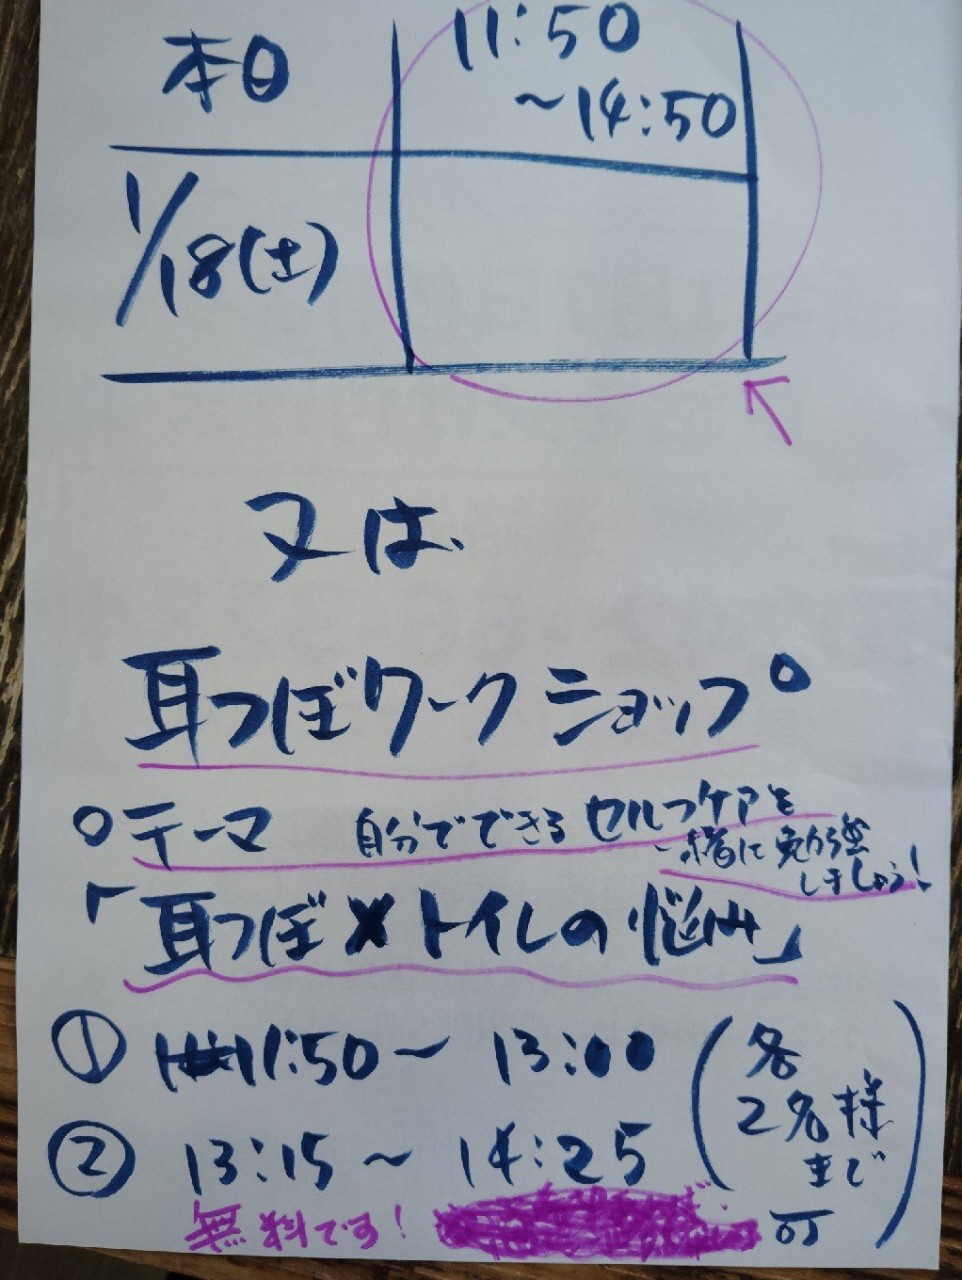 本日 11:50
～14:50
1/18(土)
又は、
耳つぼワークショップ
○テーマ 自分でできるセルフケアを
一緒に勉強
しましょう!
「耳つぼ×トイレの悩み」
① 11:50～13:00
② 13:15～14:25
(各
2名様
まで
可)
無料です!